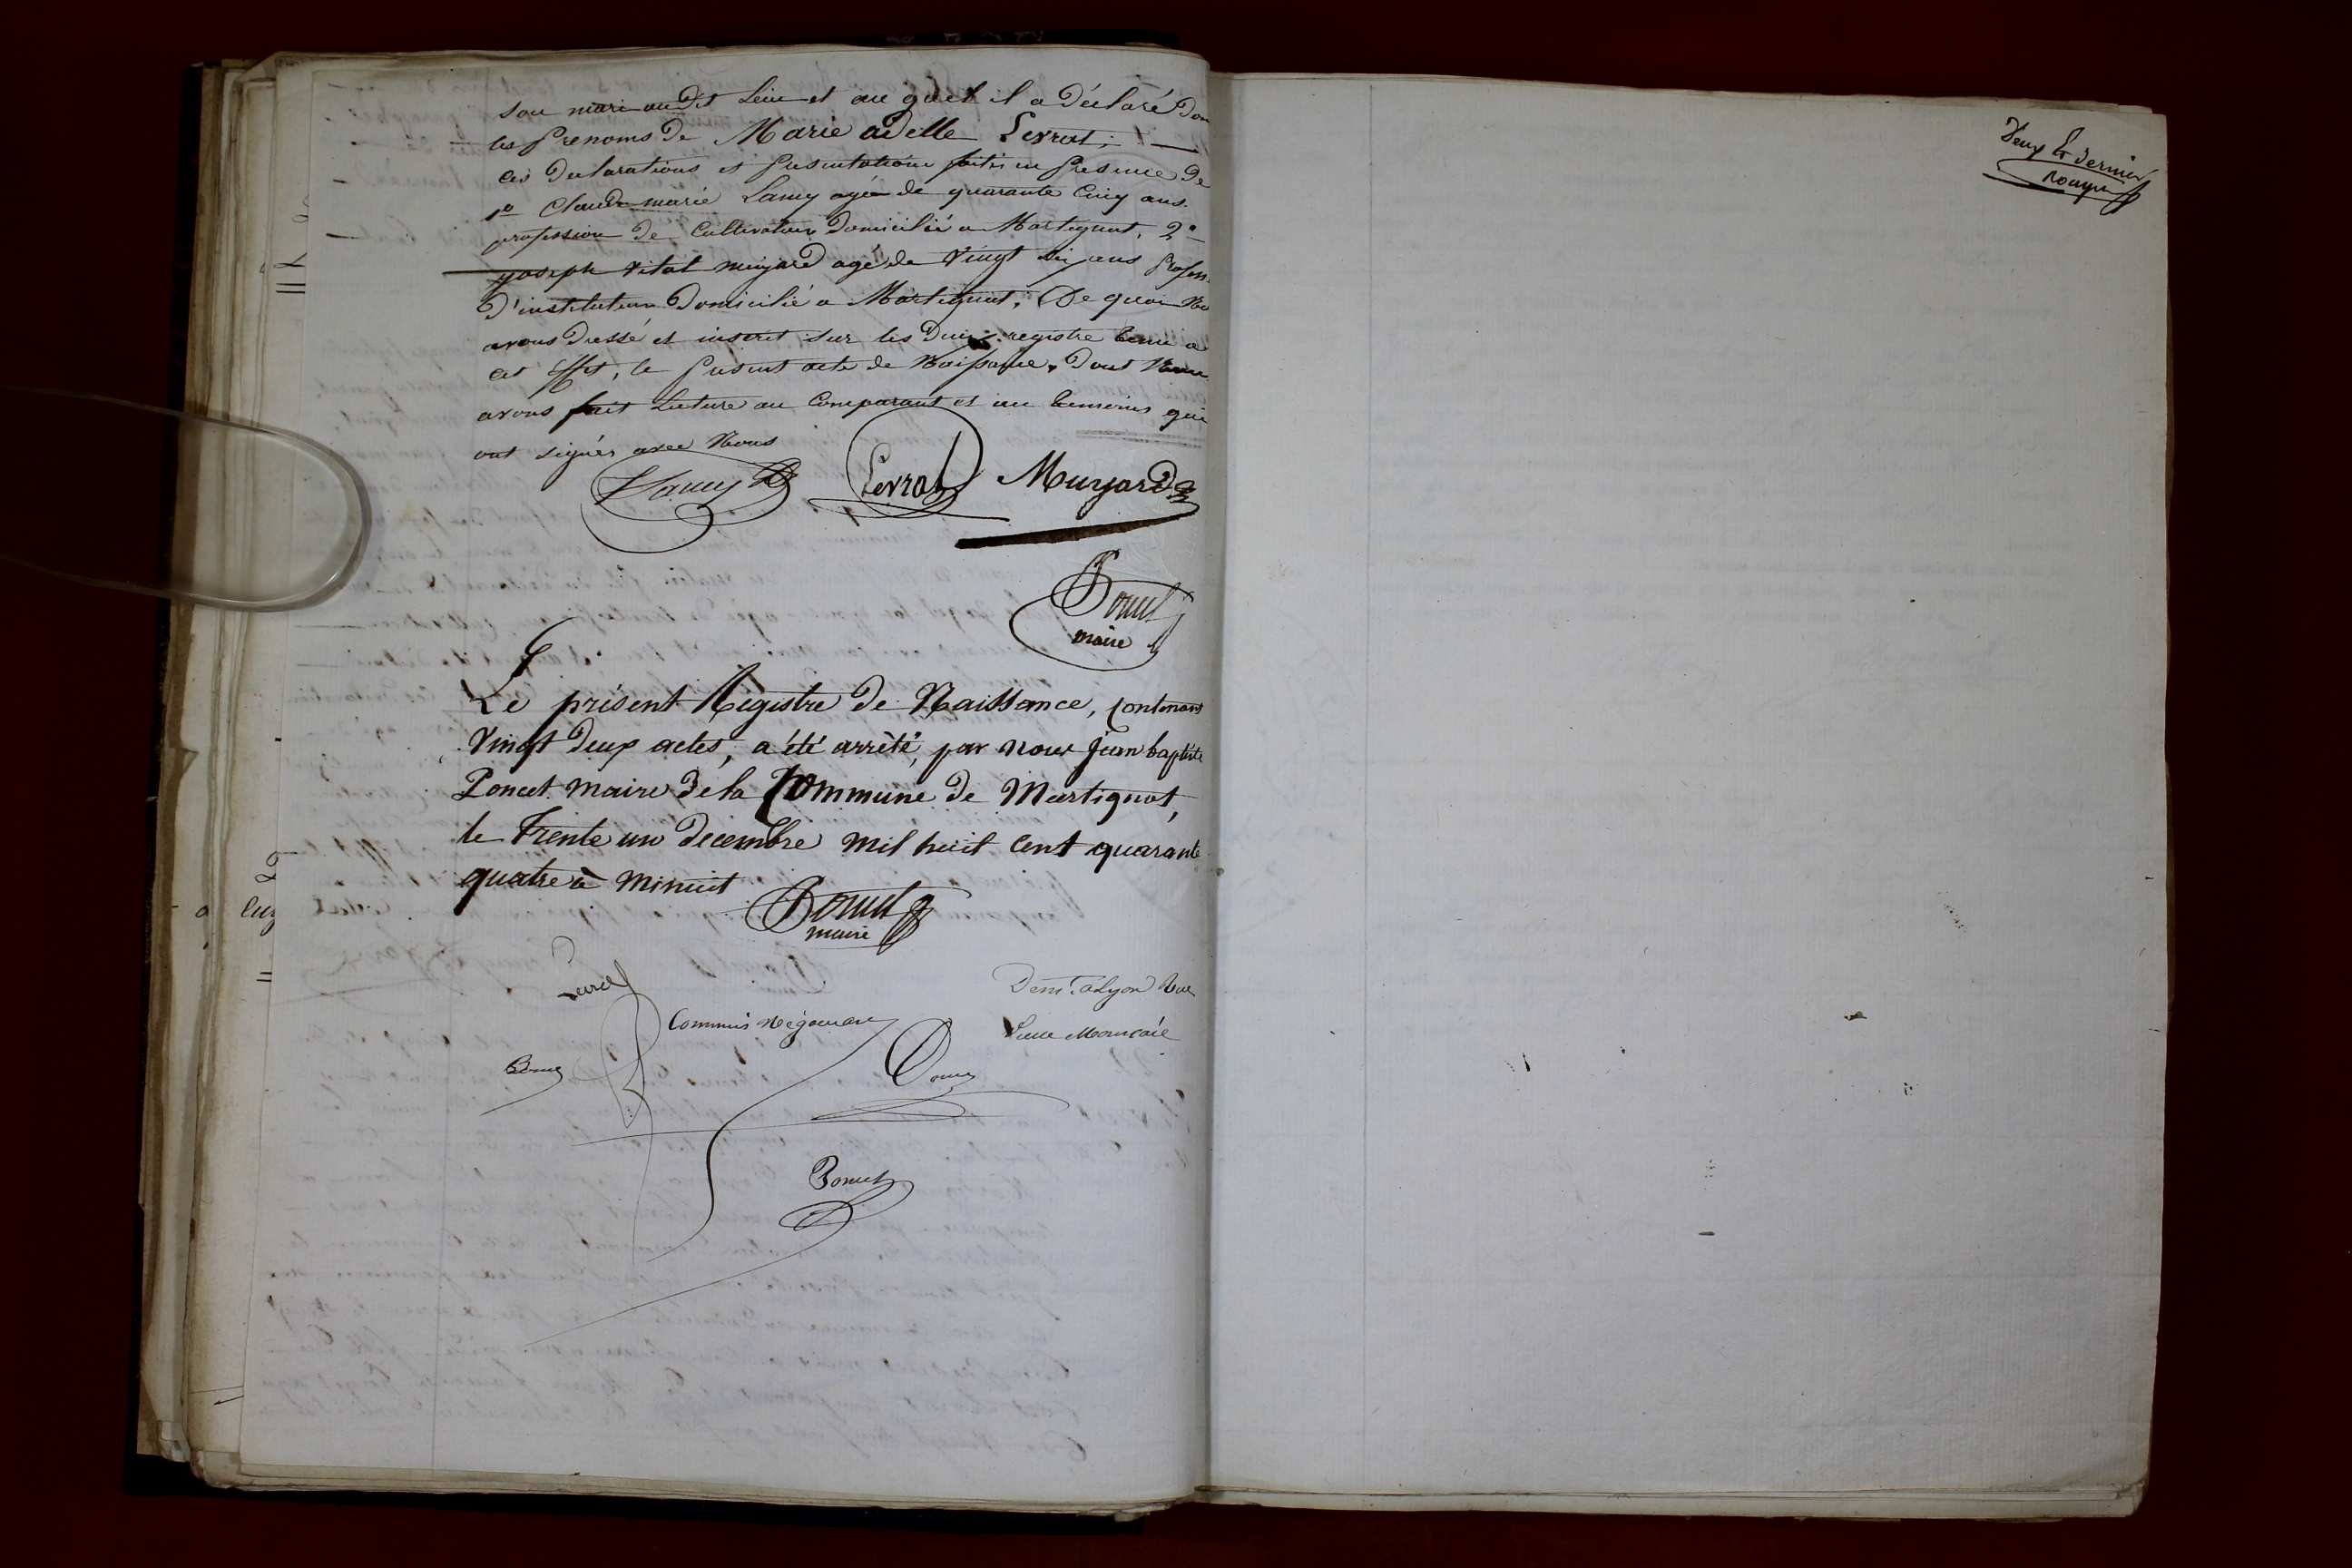 son mari audit lieu et au quel il a déclaré don
les Prenoms de Marie adelle Levrat;
ces declarations et presentation faites en presence de
1º Claude marie Lamy agée de quarante cinq ans
profession de Cultivateur domicilié a Martignat, 2º
joseph vital muyard agé de vingt six ans profess
d'instituteur domicilié a Martignat; De quoi Nou
avons dressé et inscrit sur les deux registre tenu a
cet effet, le present acte de Naissance, dont Nous
avons fait lecture au Comparant et au temoins qui
ont signés avec Nous
Lamy Levrat Muyard
Poncet
maire
Le présent Régistre de Naissance, contenant
vingt deux actes, a été arrèté, par nous jean baptiste
Poncet maire de la Commune de Martignat,
le trente un decembre mil huit cent quarante
quatre à minuit
Poncet
maire
Demt. a Lyon Rue
Commis Négociant
Poncet
Deux et dernier